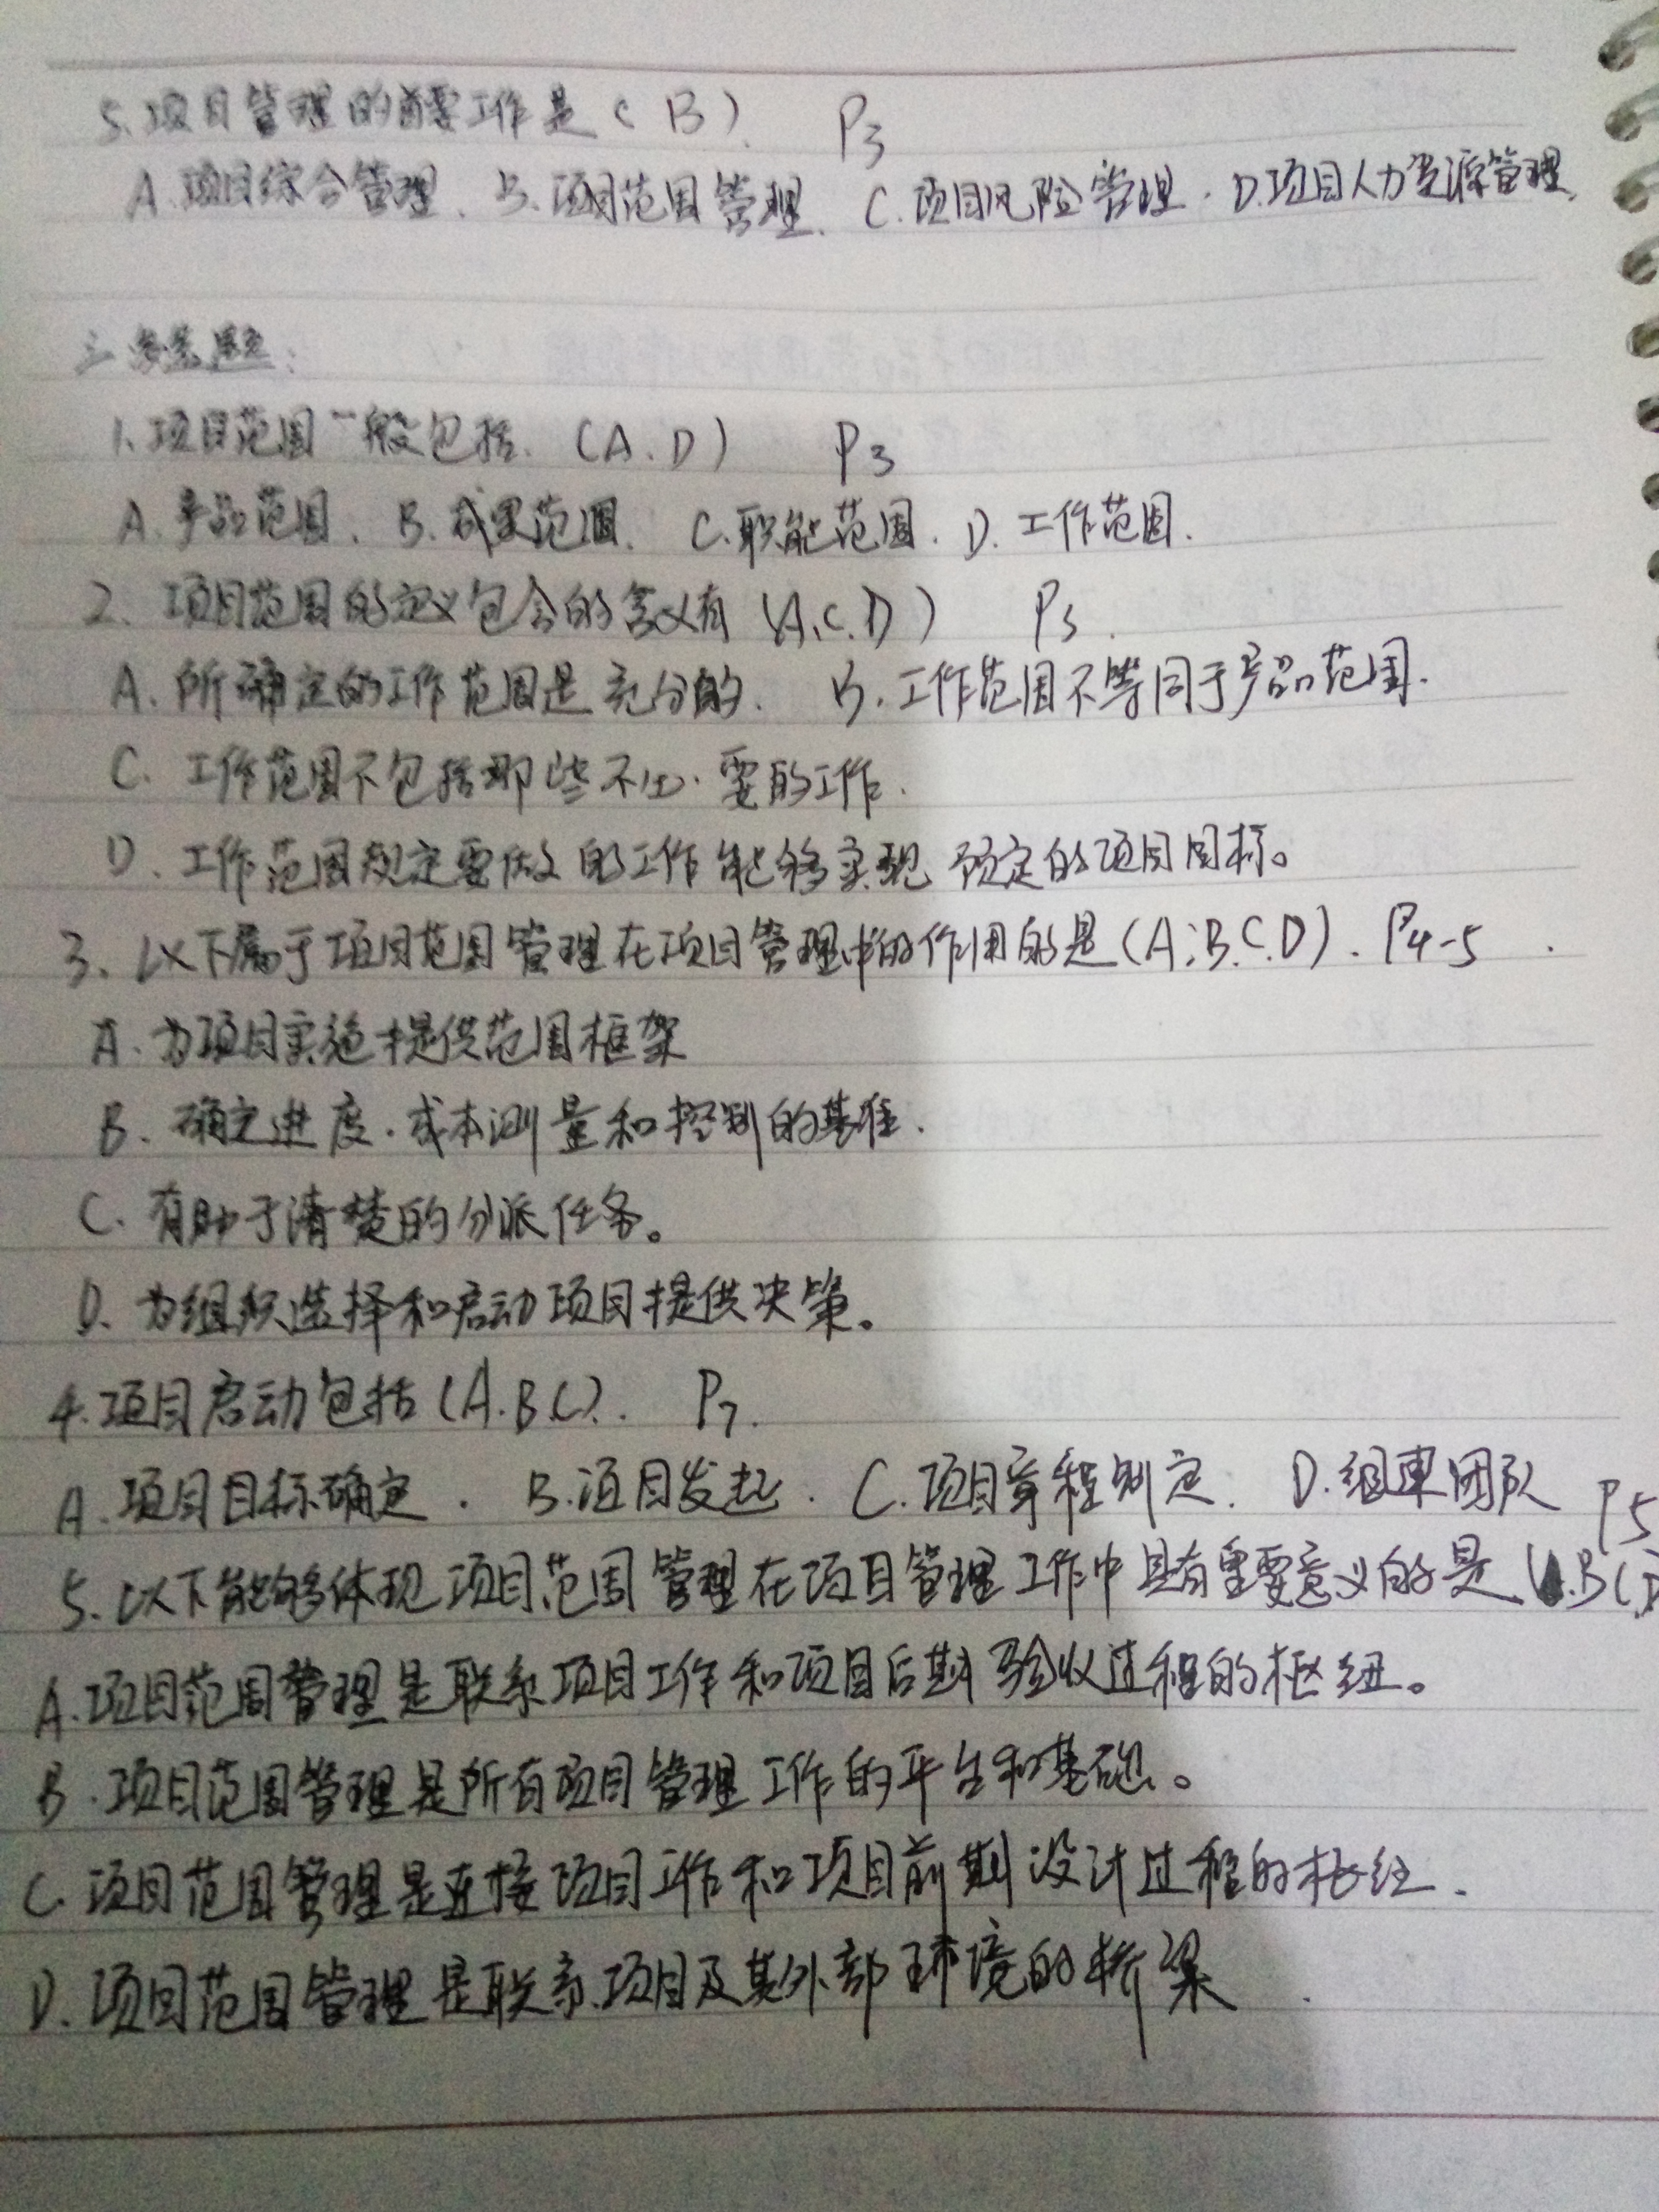 5.项目管理的首要工作是(B). P3
A.项目综合管理. B.项目范围管理. C.项目风险管理. D.项目人力资源管理.
三 多选题:
1.项目范围一般包括.(A.D) P3
A.产品范围. B.成果范围. C.职能范围. D.工作范围.
2.项目范围的定义包含的含义有(A.C.D) P3.
A.所确定的工作范围是充分的. B.工作范围不等同于产品范围.
C.工作范围不包括那些不必要的工作.
D.工作范围规定要做的工作能够实现预定的项目目标。
3.以下属于项目范围管理在项目管理中的作用的是(A.B.C.D). P4-5
A.为项目实施提供范围框架
B.确定进度.成本测量和控制的基准.
C.有助于清楚的分派任务。
D.为组织选择和启动项目提供决策。
4.项目启动包括(A.B.C). P7.
A.项目目标确定. B.项目发起. C.项目章程制定. D.组建团队
P5
5.以下能够体现项目范围管理在项目管理工作中具有重要意义的是.B C D
A.项目范围管理是联系项目工作和项目后期验收过程的枢纽。
B.项目范围管理是所有项目管理工作的平台和基础。
C.项目范围管理是连接项目工作和项目前期设计过程的枢纽.
D.项目范围管理是联系项目及其外部环境的桥梁.